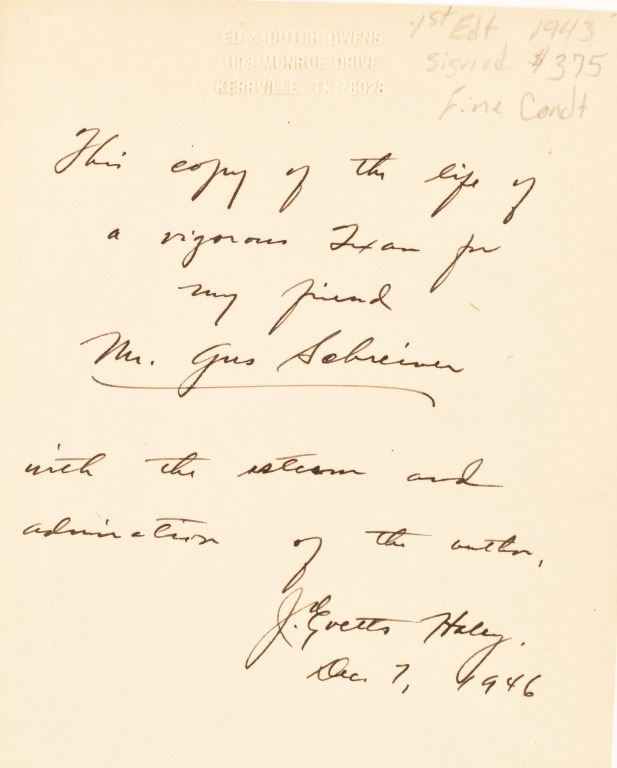 ED & DUTCH OWENS
1103 MONROE DRIVE
KERRVILLE, TX 78028
1st Edt 1943
signed $375
Fine Condt
This copy of the life of
a vigorous Texan for
my friend
Mr. Gus Schreiner
with the esteem and
admiration of the author,
J. Evetts Haley.
Dec 7, 1946